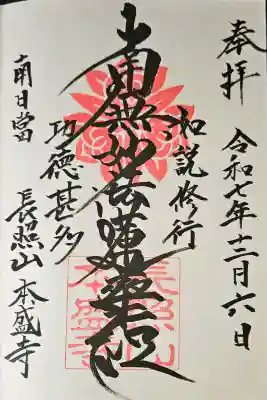 奉拝
令和七年十二月六日
如説修行
南無妙法蓮華経
功徳甚多
南日當
長照山 本盛寺
長照山
本盛寺